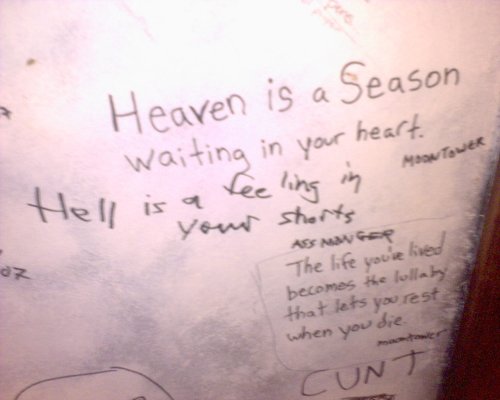 Heaven is a Season
waiting in your heart.
MOONTOWER
Hell is a feeling in
your shorts
ASS MONGER
The life you've lived
becomes the lullaby
that lets you rest
when you die.
moontower
CUNT